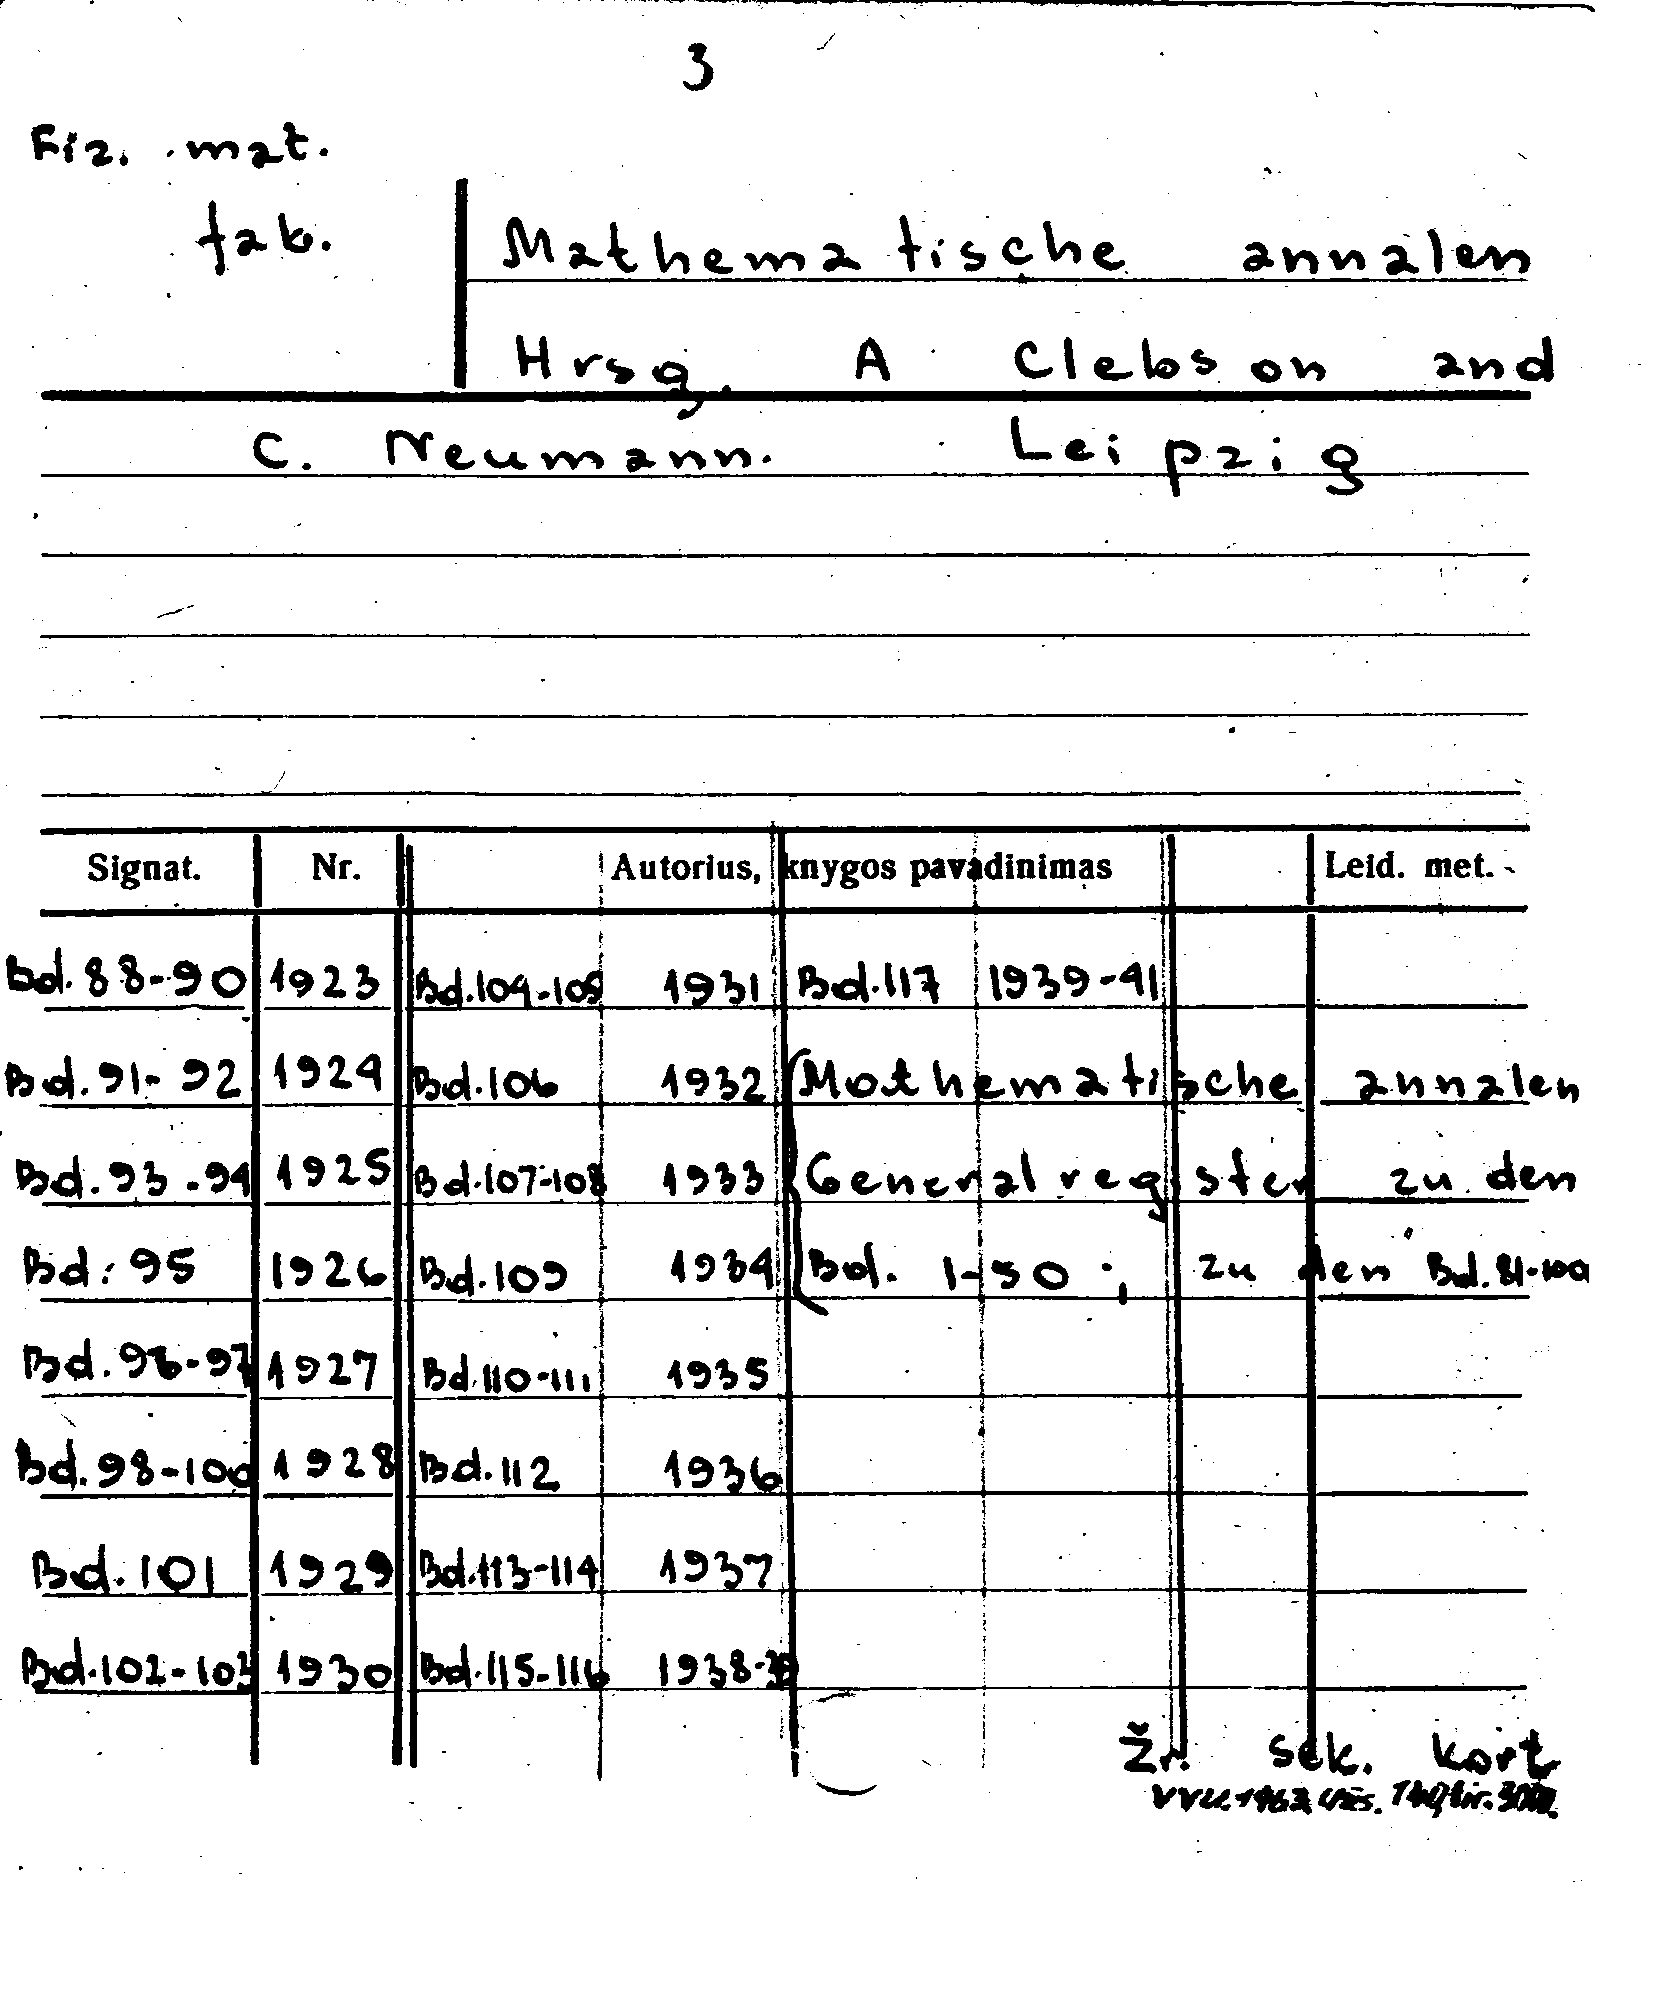 3
Fiz. mat.
fak.
Mathematische annalen
Hrsg. A Clebson and
C. Neumann. Leipzig
Signat. Nr. Autorius, knygos pavadinimas Leid. met.
Bd. 88-90 1923 Bd.104-105 1931 Bd.117 1939-41
Bd. 91-92 1924 Bd.106 1932 Mothematische annalen
Bd. 93-94 1925 Bd.107-108 1933 Generalregister zu den
Bd. 95 1926 Bd.109 1934 Bd. 1-50; zu den Bd.81-100
Bd. 96-97 1927 Bd.110-111 1935
Bd. 98-100 1928 Bd.112 1936
Bd. 101 1929 Bd.113-114 1937
Bd.102-103 1930 Bd.115-116 1938-39
Žr. sek. kort
VVU. 1962 Užs. tir.